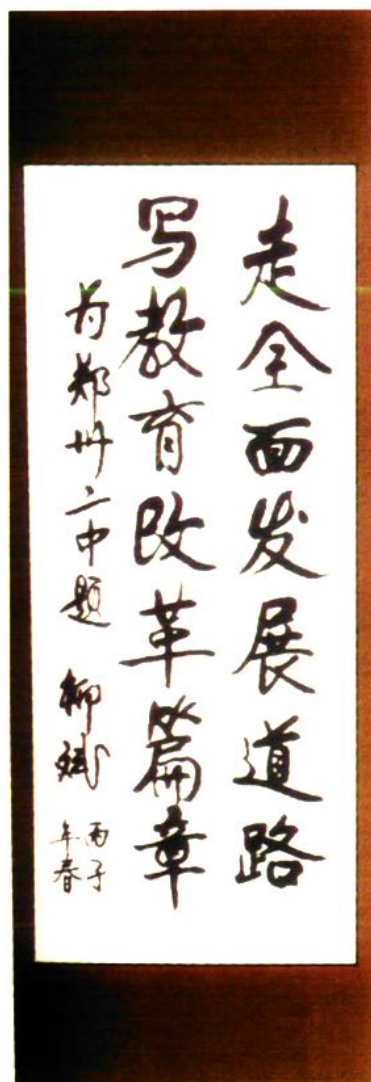 走全面发展道路
写教育改革篇章
为郑州二中题 柳斌
丙子
年春